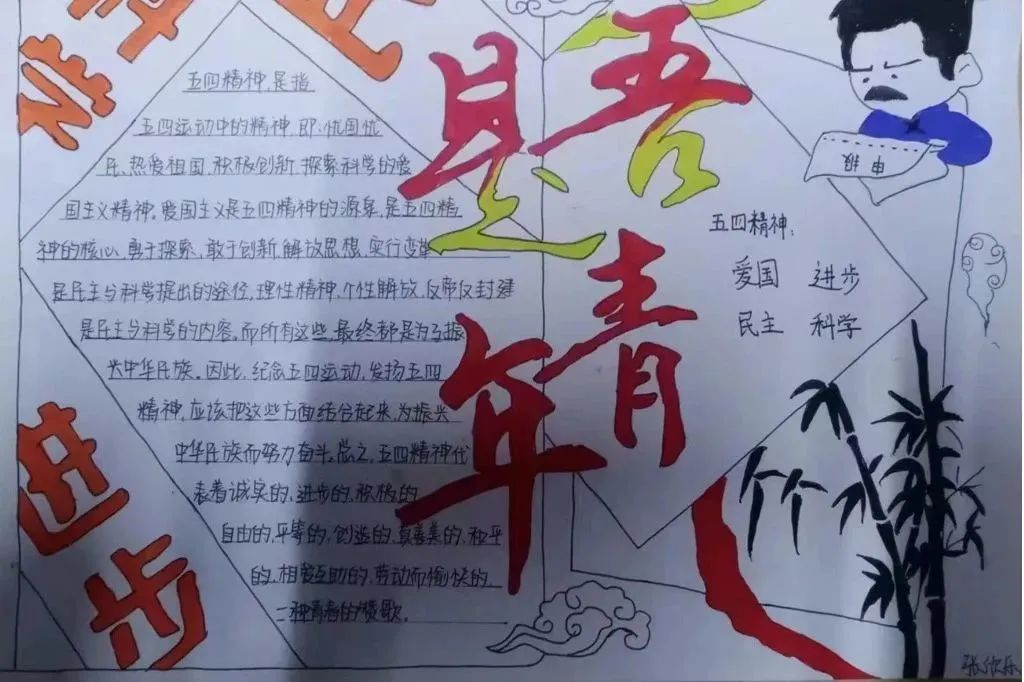 学
五四精神,是指
五四运动中的精神 即:忧国忧
民、热爱祖国,积极创新 探索科学的爱
国主义精神,爱国主义是五四精神的源泉,是五四精
神的核心,勇于探索,敢于创新,解放思想,实行变革
是民主与科学提出的途径,理性精神,个性解放,反帝反封建
是民主与科学的内容。而所有这些,最终都是为了振
兴中华民族。因此,纪念五四运动,发扬五四
精神,应该把这些方面结合起来,为振兴
中华民族而努力奋斗。总之,五四精神代
表着诚实的,进步的,积极的
自由的,平等的,创造的,真善美的,和平
的,相爱互助的,劳动而愉快的
的赞歌。
进步
吾是
青年
申报
五四精神:
爱国 进步
民主 科学